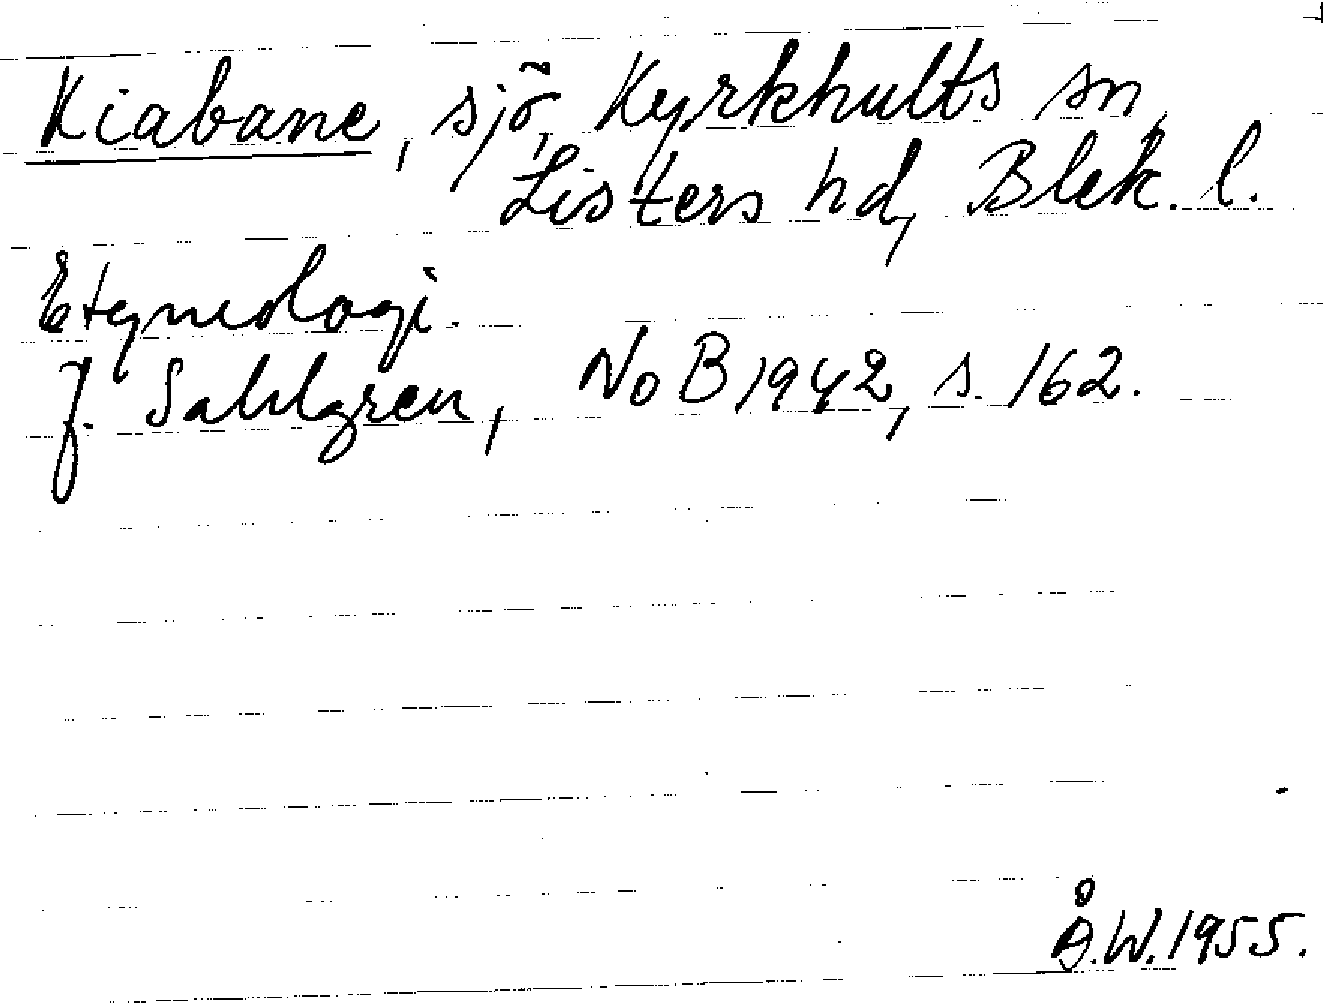 Kiabane, sjö, Kyrkhults sn,
Listers hd, Blek. l.
Etymologi.
J. Sahlgren, NoB 1942, s. 162.
Å.W. 1955.